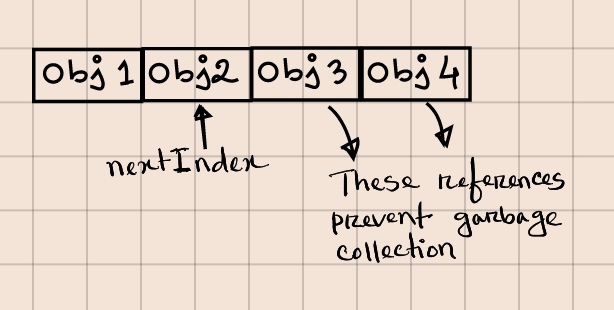 Obj 1 Obj2 Obj 3 Obj 4
nextIndex
These references
prevent garbage
collection